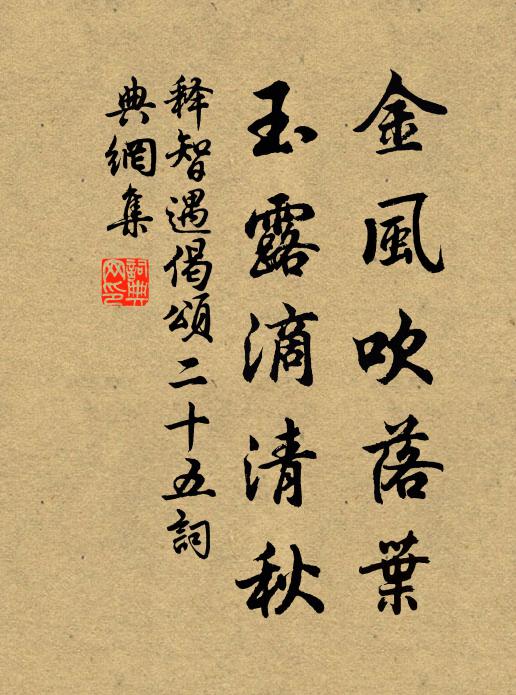 金風吹落葉
玉露滴清秋
释智遇偈頌二十五詞
典網集
詞典網印